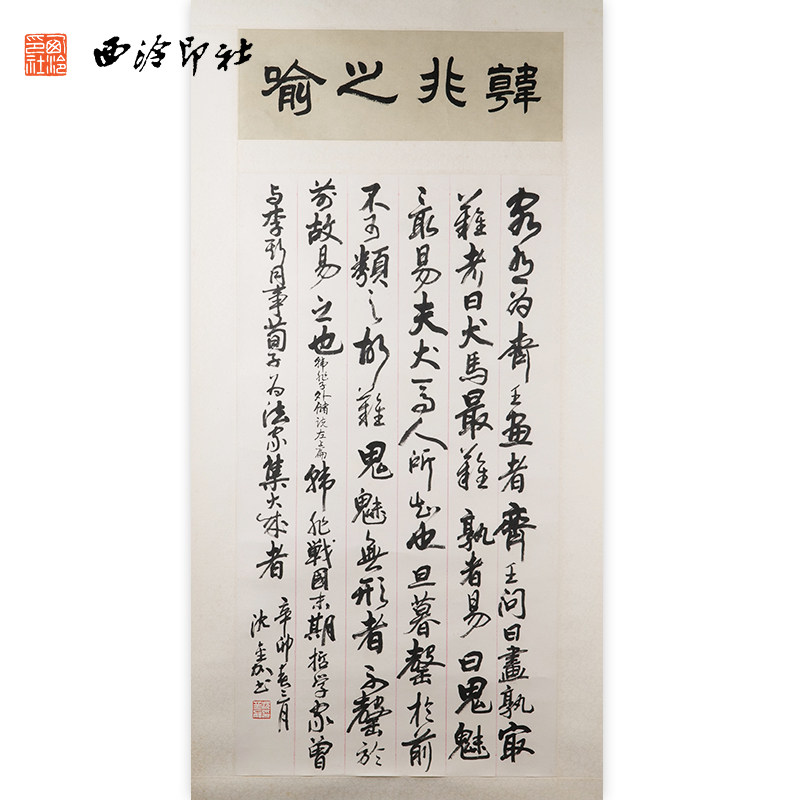 西泠印社
西泠印社
韓非之喻
客有为齊王畫者齊王问曰畫孰最
難者曰犬馬最難孰者易曰鬼魅
々最易夫犬马人所知也旦暮罄於前
不可類之故難鬼魅無形者不罄於
前故易之也韩非子外储说左上篇韩非戰國末期哲学家曾
与李斯同事荀子为法家集大成者
辛卯春三月
沈金书